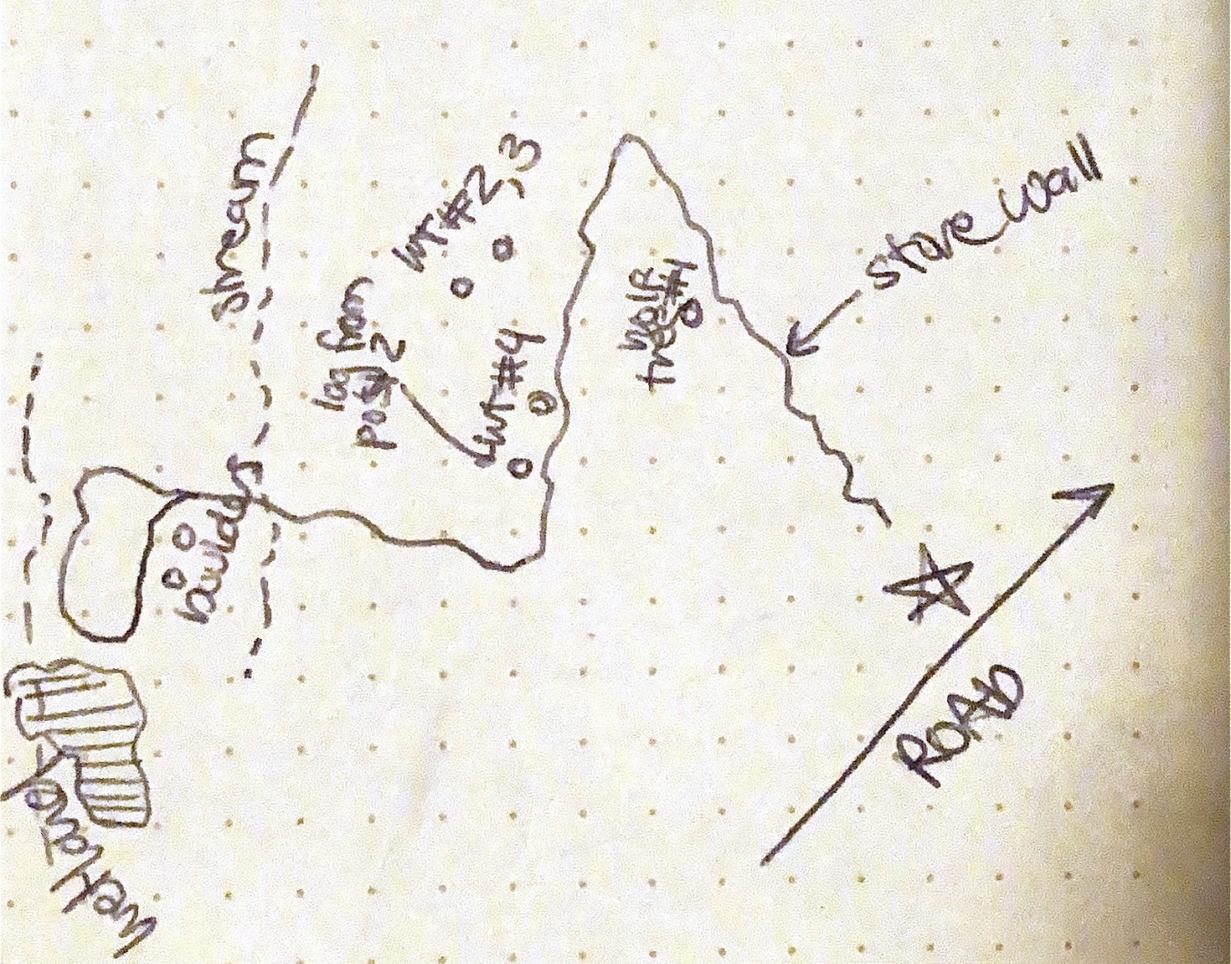 stream
WT #2,3
log from
post 2
WT #4
wolf
tree #1
stone wall
boulders
ROAD
wetland